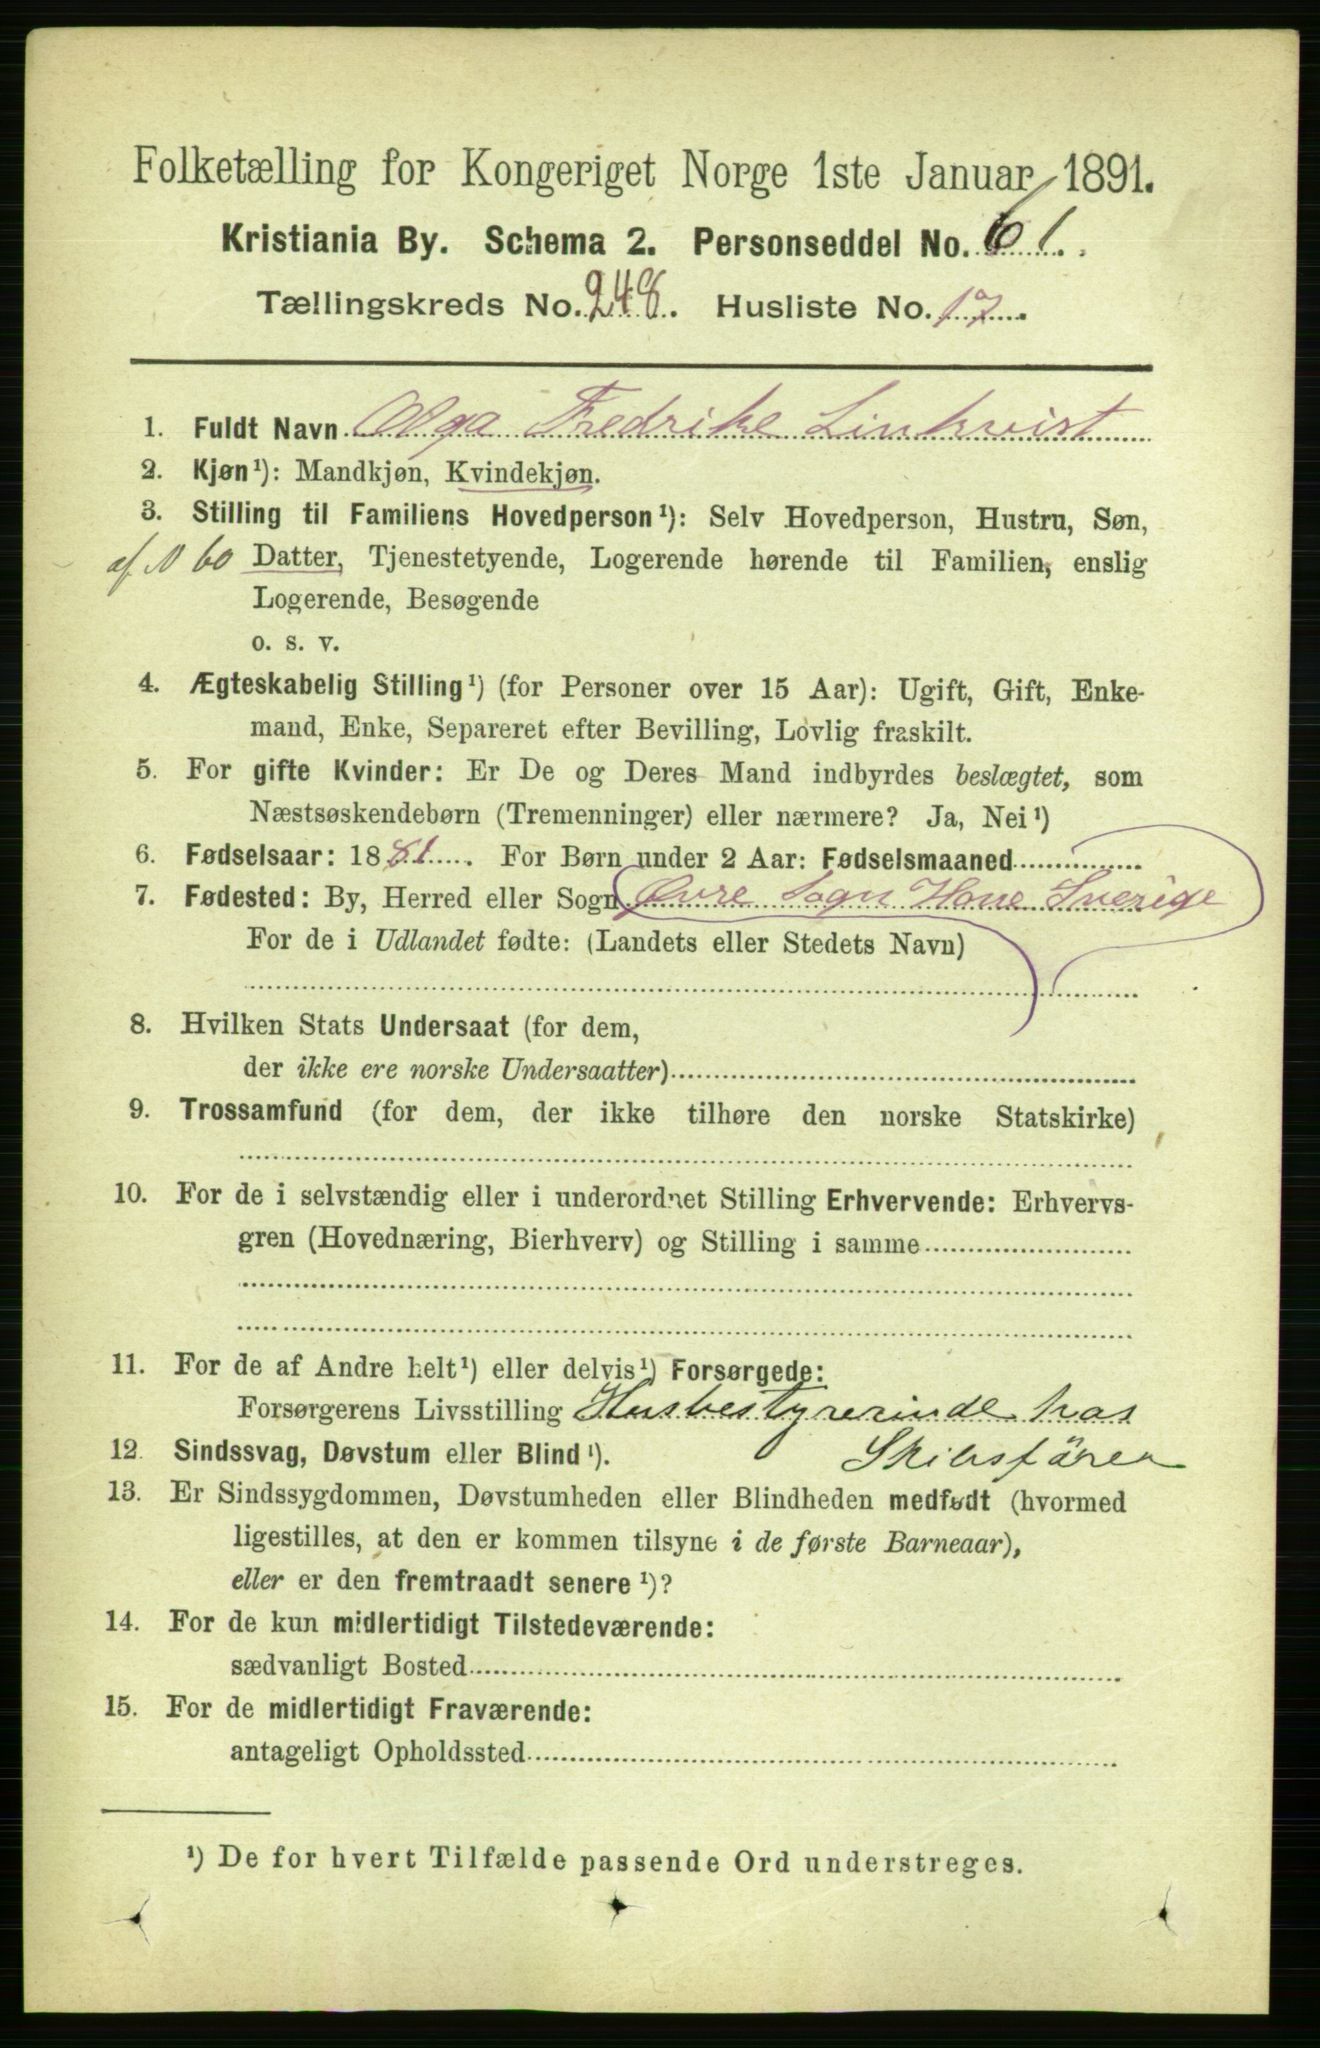 Folketælling for Kongeriget Norge 1ste Januar 1891.
Kristiania By. Schema 2. Personseddel No. 61.
Tællingskreds No. 248. Husliste No. 17.
1. Fuldt Navn Olga Fredrike Linkvist
2. Kjøn¹): Mandkjøn, Kvindekjøn.
3. Stilling til Familiens Hovedperson¹): Selv Hovedperson, Hustru, Søn,
af N 60 Datter, Tjenestetyende, Logerende hørende til Familien, enslig
Logerende, Besøgende
o. s. v.
4. Ægteskabelig Stilling¹) (for Personer over 15 Aar): Ugift, Gift, Enke-
mand, Enke, Separeret efter Bevilling, Lovlig fraskilt.
5. For gifte Kvinder: Er De og Deres Mand indbyrdes beslægtet, som
Næstsøskendebørn (Tremenninger) eller nærmere? Ja, Nei¹)
6. Fødselsaar: 1881. For Børn under 2 Aar: Fødselsmaaned
7. Fødested: By, Herred eller Sogn Øvre Sogn Sverige
For de i Udlandet fødte: (Landets eller Stedets Navn)
8. Hvilken Stats Undersaat (for dem,
der ikke ere norske Undersaatter)
9. Trossamfund (for dem, der ikke tilhøre den norske Statskirke)
10. For de i selvstændig eller i underordnet Stilling Erhvervende: Erhvervs-
gren (Hovednæring, Bierhverv) og Stilling i samme
11. For de af Andre helt¹) eller delvis¹) Forsørgede:
Forsørgerens Livsstilling Husbestyrerinde hos
Skibsfører
12. Sindssvag, Døvstum eller Blind¹).
13. Er Sindssygdommen, Døvstumheden eller Blindheden medfødt (hvormed
ligestilles, at den er kommen tilsyne i de første Barneaar),
eller er den fremtraadt senere¹)?
14. For de kun midlertidigt Tilstedeværende:
sædvanligt Bosted
15. For de midlertidigt Fraværende:
antageligt Opholdssted
¹) De for hvert Tilfælde passende Ord understreges.